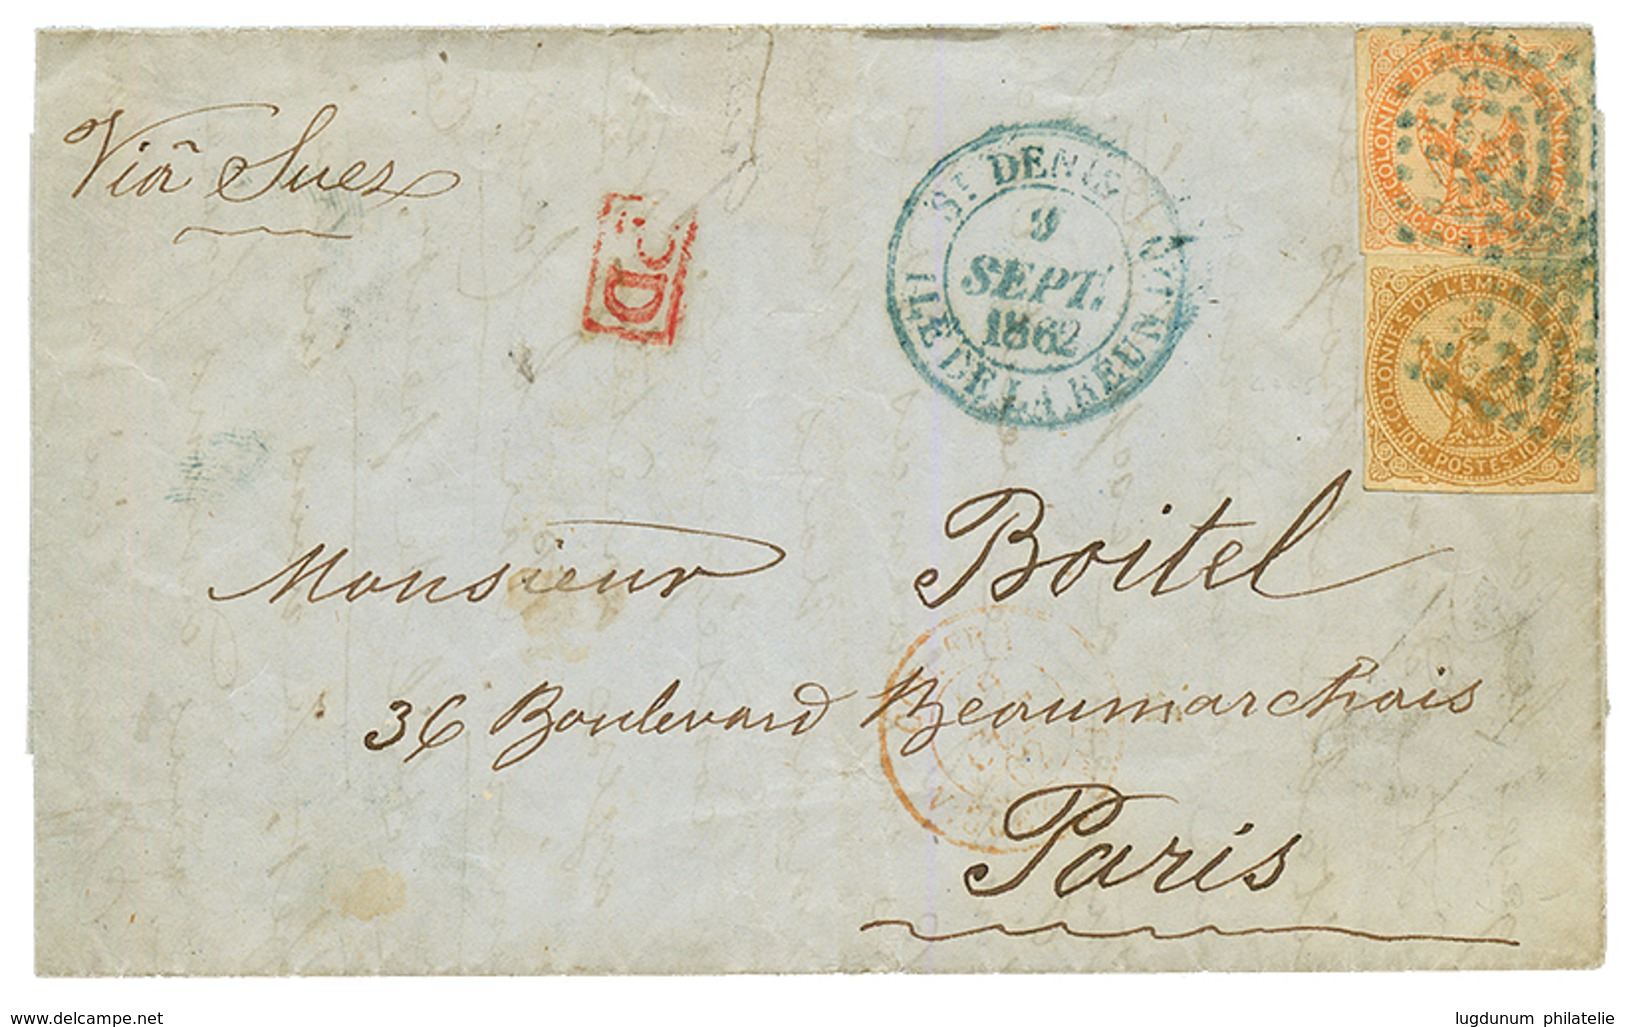 Viâ Suez
P.D
St DENIS
9
SEPT.
1862
ILE DE LA RÉUNION
COLONIES DE L'EMPIRE FRANÇAIS
C. POSTES
COLONIES DE L'EMPIRE FRANÇAIS
10 C. POSTES. 10
Monsieur Boitel
36 Boulevard Beaumarchais
Paris
delcampe.net
lugdunum philatelie